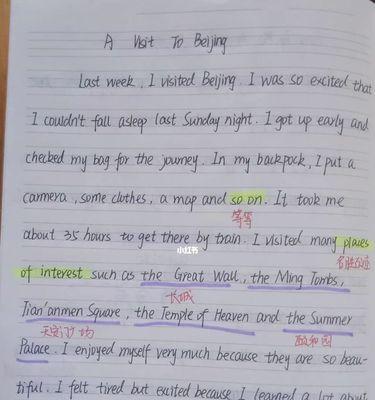 A Visit To Beijing
Last week, I visited Beijing. I was so excited that
I couldn't fall asleep last Sunday night. I got up early and
checked my bag for the journey. In my backpack, I put a
camera, some clothes, a map and so on. It took me
等等
about 35 hours to get there by train. I visited many places
小红书
名胜古迹
of interest such as the Great Wall, the Ming Tombs,
长城
Tian'anmen Square, the Temple of Heaven and the Summer
天安门广场
颐和园
Palace. I enjoyed myself very much because they are so beau-
tiful. I felt tired but excited because I learned a lot about